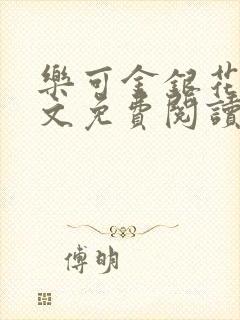 樂可金銀花
文免費閱讀
傅明